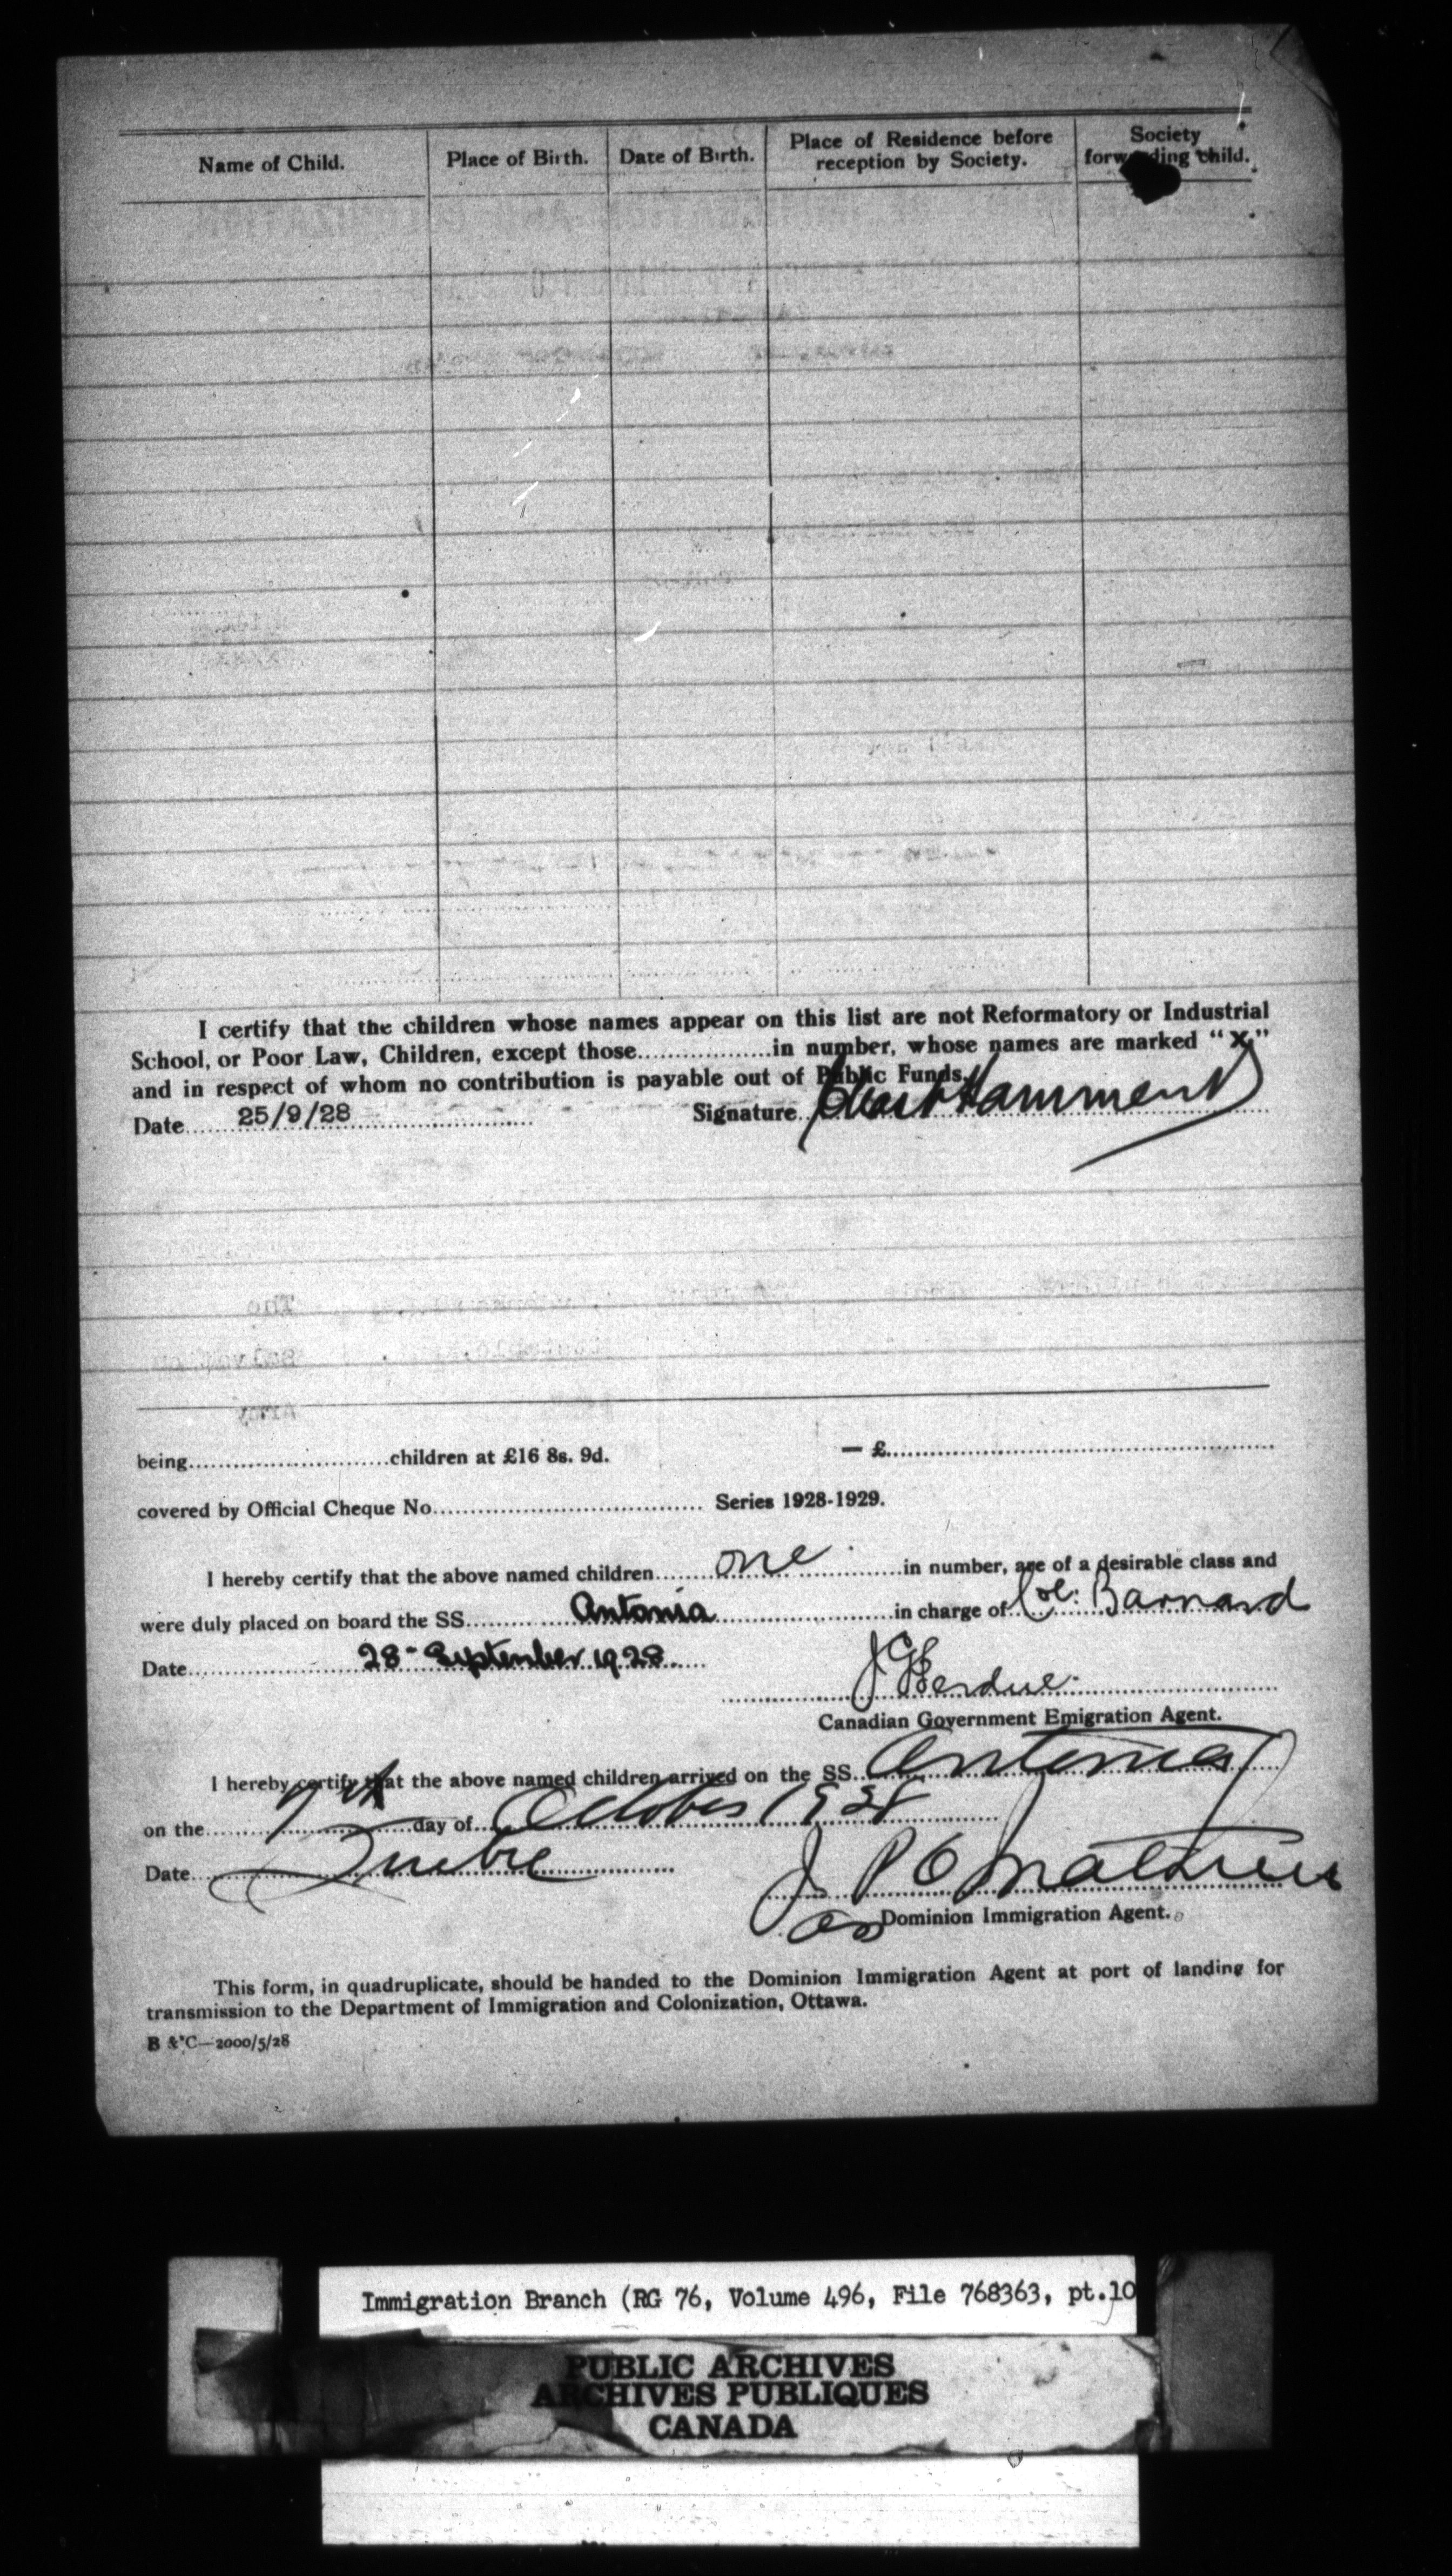 Name of Child. Place of Birth. Date of Birth. Place of Residence before reception by Society. Society forwarding child.
I certify that the children whose names appear on this list are not Reformatory or Industrial
School, or Poor Law, Children, except those..................in number, whose names are marked “X,”
and in respect of whom no contribution is payable out of Public Funds.
Date 25/9/28 Signature Hamment
being...........................children at £16 8s. 9d. — £
covered by Official Cheque No. Series 1928-1929.
I hereby certify that the above named children one in number, are of a desirable class and
were duly placed on board the SS. Antonia in charge of Col. Barnard
Date 28 - September 1928
J Perdue
Canadian Government Emigration Agent.
I hereby certify that the above named children arrived on the SS. Antonia
on the 7th day of October 1928
Date Quebec
J P O Mathieu
Dominion Immigration Agent.
This form, in quadruplicate, should be handed to the Dominion Immigration Agent at port of landing for
transmission to the Department of Immigration and Colonization, Ottawa.
B & C—2000/5/28
Immigration Branch (RG 76, Volume 496, File 768363, pt.10
PUBLIC ARCHIVES
ARCHIVES PUBLIQUES
CANADA